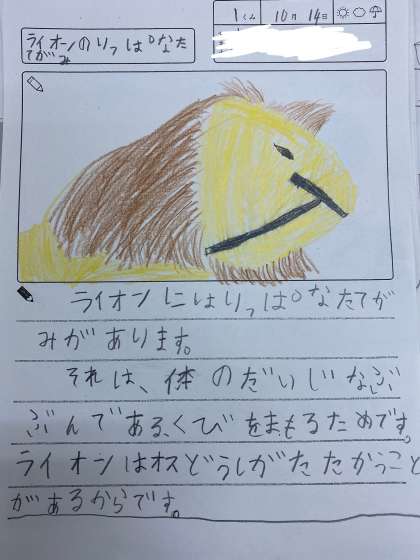 1くみ 10月 14日
ライオンのりっぱなた
てがみ
ライオンにはりっぱなたてが
みがあります。
それは、体のだいじなぶ
ぶんである、くびをまもるためです。
ライオンはオスどうしがたたかうこと
があるからです。